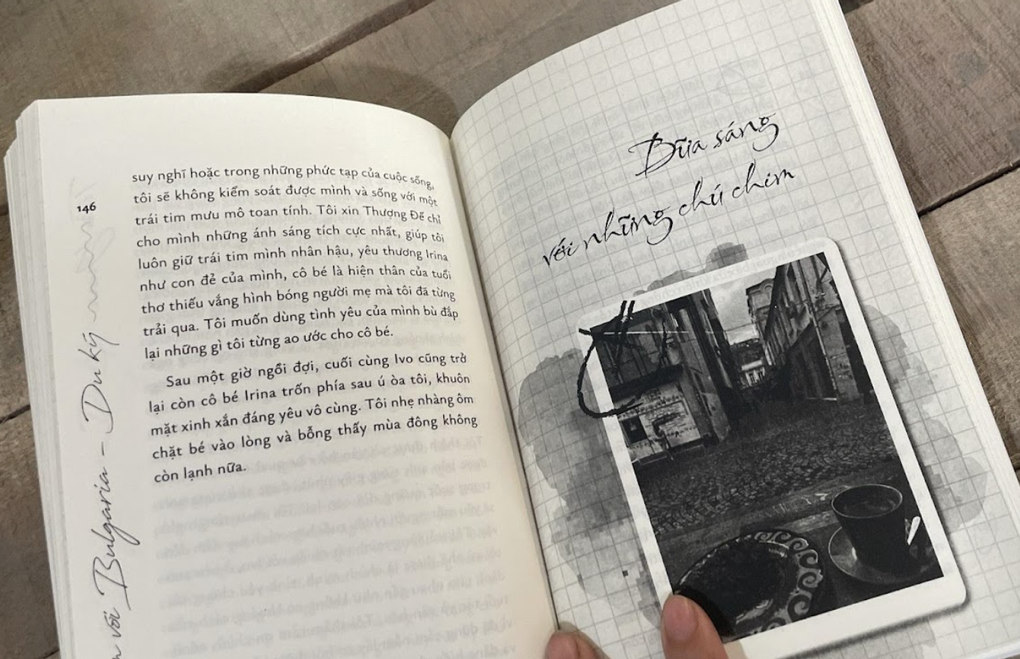 146
suy nghĩ hoặc trong những phức tạp của cuộc sống,
tôi sẽ không kiểm soát được mình và sống với một
trái tim mưu mô toan tính. Tôi xin Thượng Đế chỉ
cho mình những ánh sáng tích cực nhất, giúp tôi
luôn giữ trái tim mình nhân hậu, yêu thương Irina
như con đẻ của mình, cô bé là hiện thân của tuổi
thơ thiếu vắng hình bóng người mẹ mà tôi đã từng
trải qua. Tôi muốn dùng tình yêu của mình bù đắp
lại những gì tôi từng ao ước cho cô bé.
Sau một giờ ngồi đợi, cuối cùng Ivo cũng trở
lại còn cô bé Irina trốn phía sau ú òa tôi, khuôn
mặt xinh xắn đáng yêu vô cùng. Tôi nhẹ nhàng ôm
chặt bé vào lòng và bỗng thấy mùa đông không
còn lạnh nữa.
với Bulgaria - Du ký
Bữa sáng
với những chú chim